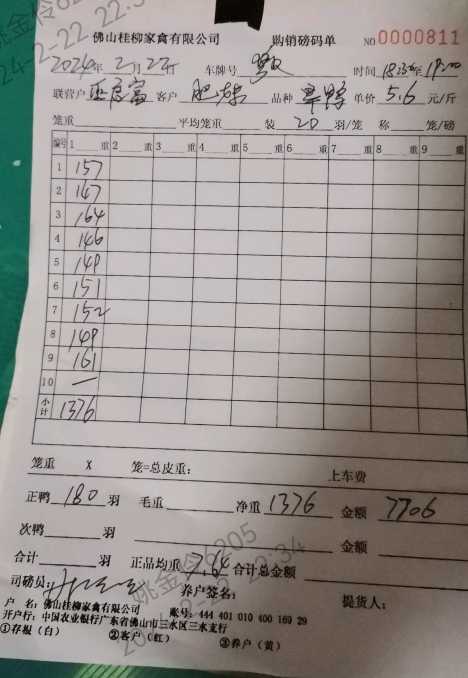 佛山桂柳家禽有限公司 购销磅码单 NO 0000811
2024年 2月22日 车牌号 时间 至
联营户 客户 肥 品种 草鸭 单价 5.6 元/斤
笼重 平均笼重 装 20 羽/笼 称 笼/磅
编号 1 重 2 重 3 重 4 重 5 重 6 重 7 重 8 重 9 重
1 157
2 147
3 164
4 146
5 149
6 151
7 152
8 149
9 161
10 —
小计 1376
笼重 X 笼=总皮重: 上车费
正鸭 180 羽 毛重 净重 1376 金额 7706
次鸭 羽 金额
合计 羽 正品均重 7.64 合计总金额
司磅员: 养户签名: 提货人:
户 名: 佛山桂柳家禽有限公司 账号: 444 401 010 400 169 29
开户行: 中国农业银行广东省佛山市三水区三水支行
①存根(白) ②客户(红) ③养户(黄)